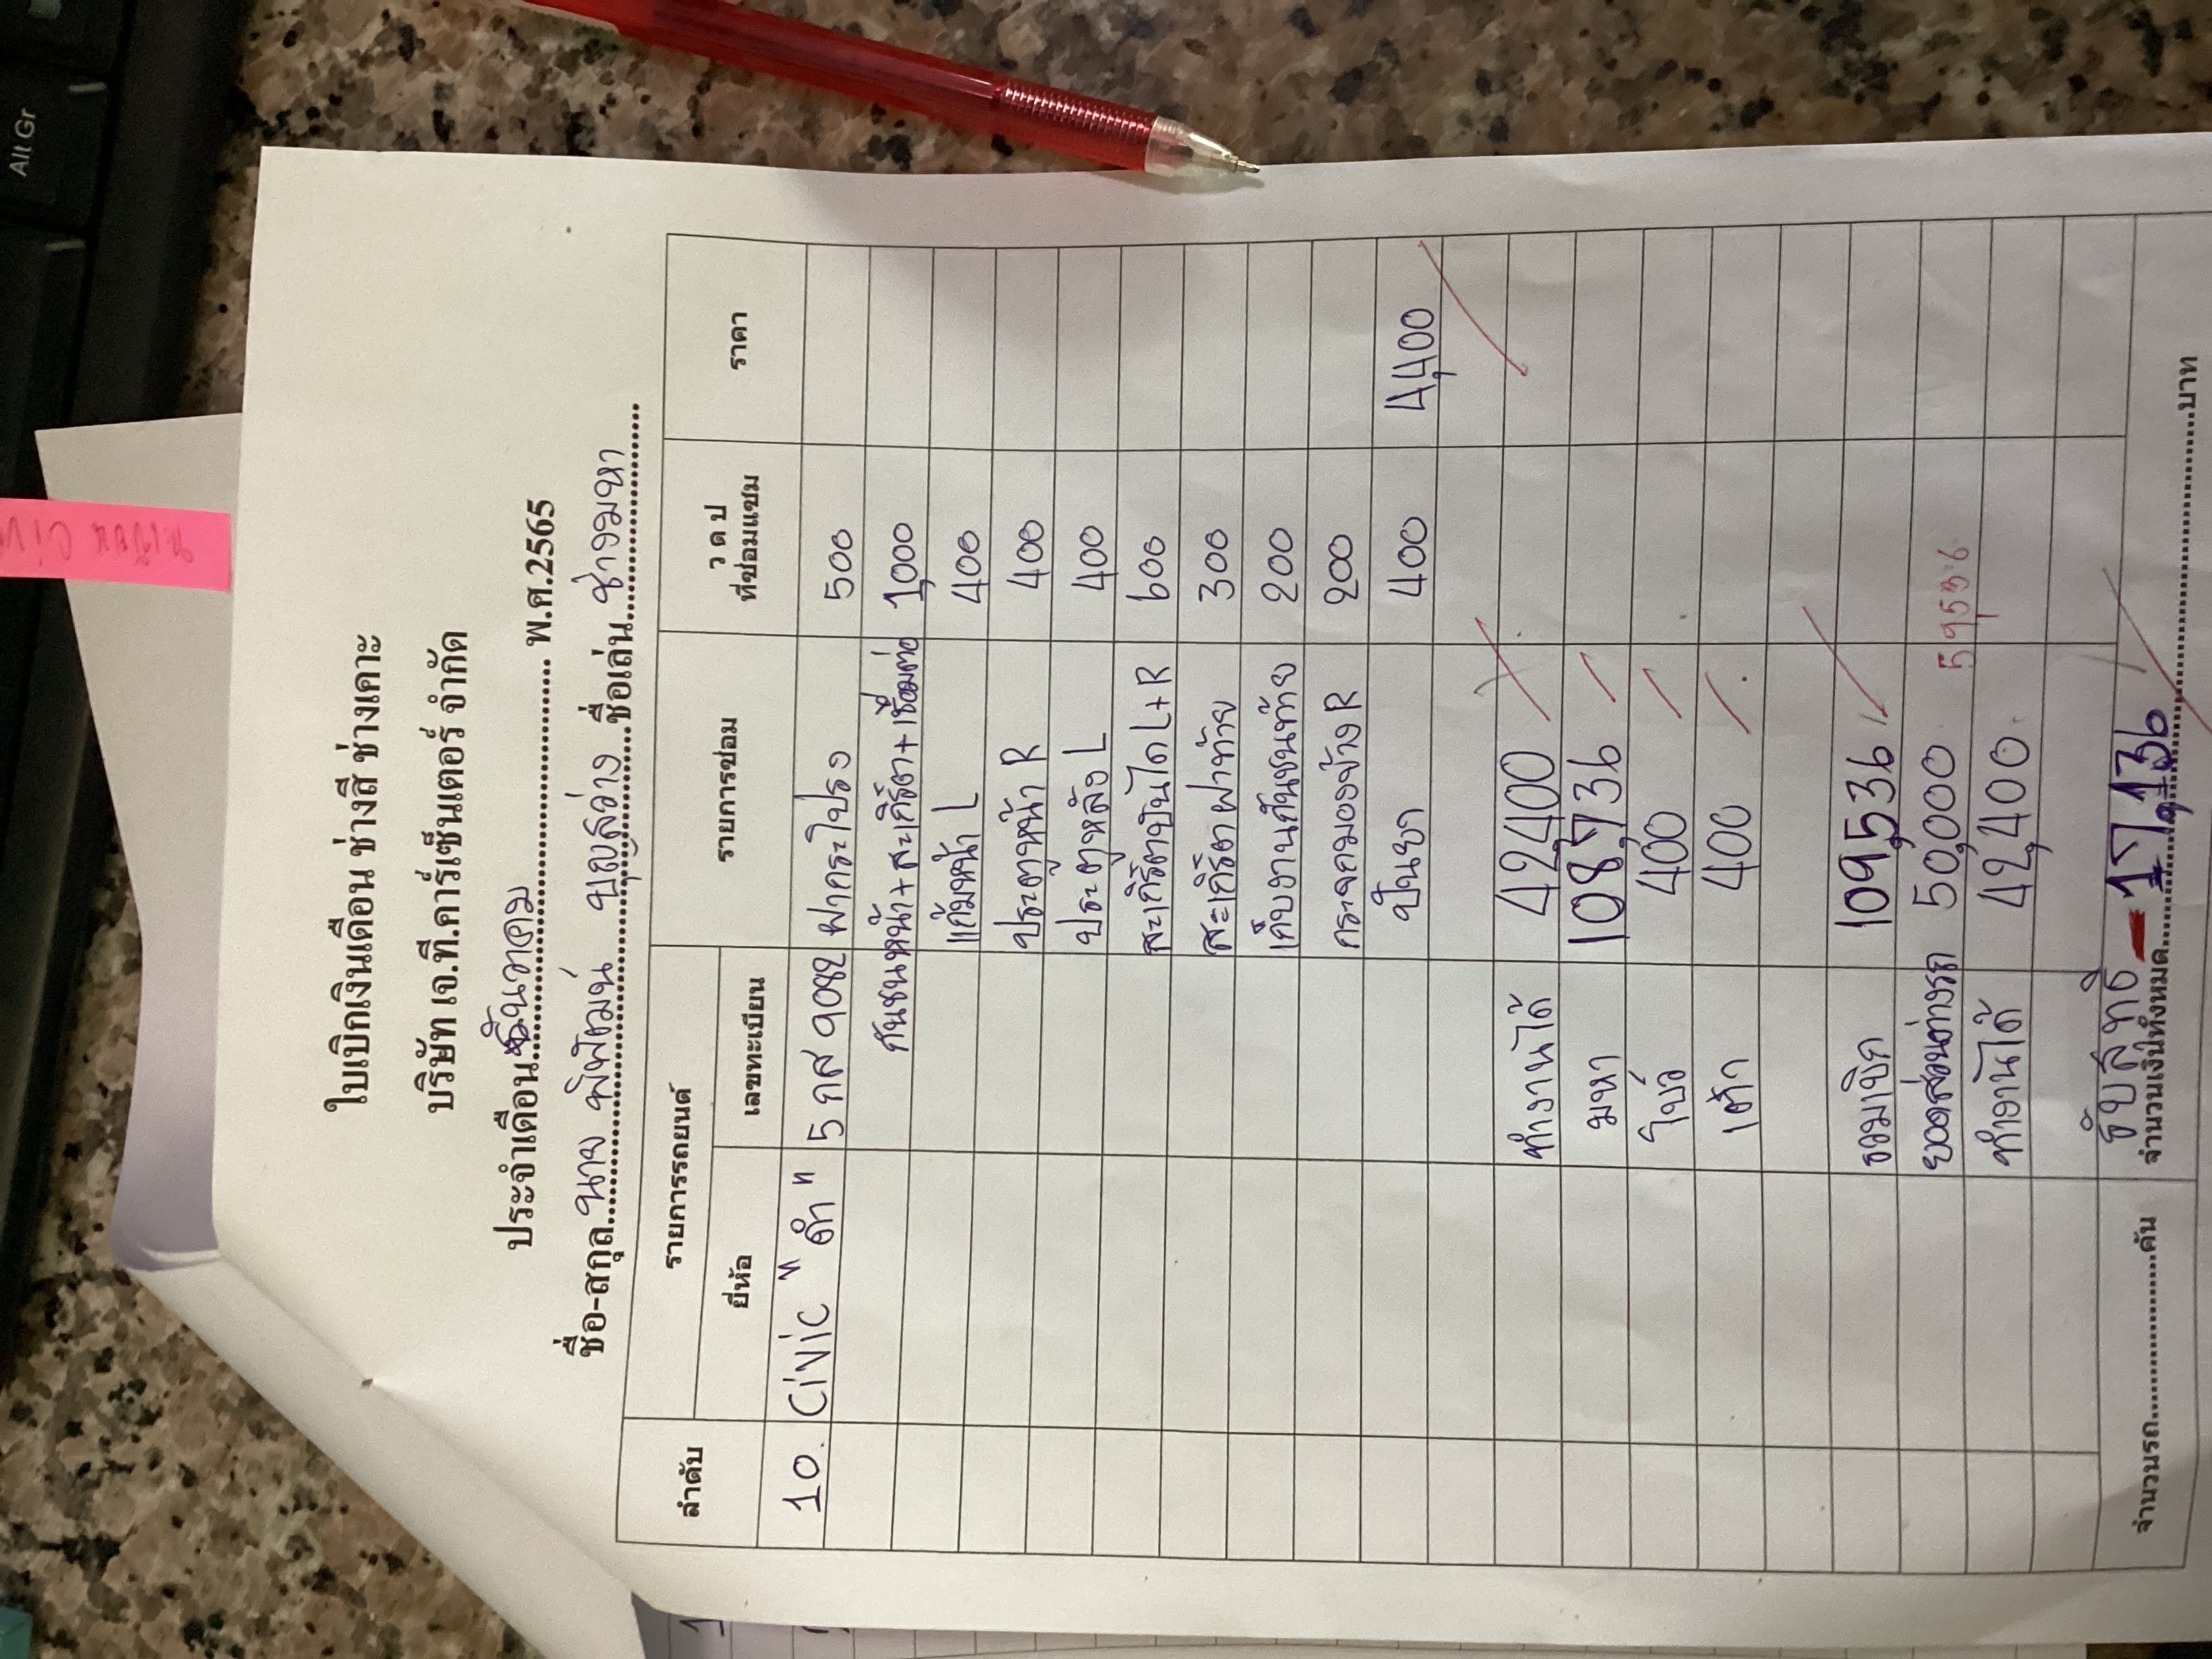 Alt Gr
ใบเบิกเงินเดือน ช่างสี ช่างเคาะ
บริษัท เจ.ที.คาร์เซ็นเตอร์ จำกัด
ประจำเดือน ธันวาคม พ.ศ.2565
ชื่อ-สกุล นาย พิพัฒน์ บุญสว่าง ชื่อเล่น ช่างมหา
ลำดับ รายการรถยนต์ รายการซ่อม ว ด ป ที่ซ่อมแซม ราคา
ยี่ห้อ เลขทะเบียน
10. Civic "ดำ" 5 กส 9082 ฝากระโปรง 500
กันชนหน้า+สะเกิร์ตา+เชื่อมต่อ 1,000
แก้มหน้า L 400
ประตูหน้า R 400
ประตูหลัง L 400
สะเกิร์ตบันได L+R 600
สะเกิร์ตฝาท้าย 300
เก็บงานกันชนท้าย 200
กระจกมองข้าง R 200
ปั่นยา 400 4,400
ทำงานได้ 42,400
มหา 108,736
โบว์ 400
เต๋า 400
รวมเบิก 109,536
ยอดส่วนต่างรถ 50,000 59,536
ทำงานได้ 42,400
รับสุทธิ - 17,136
จำนวนรถ คัน จำนวนเงินทั้งหมด บาท